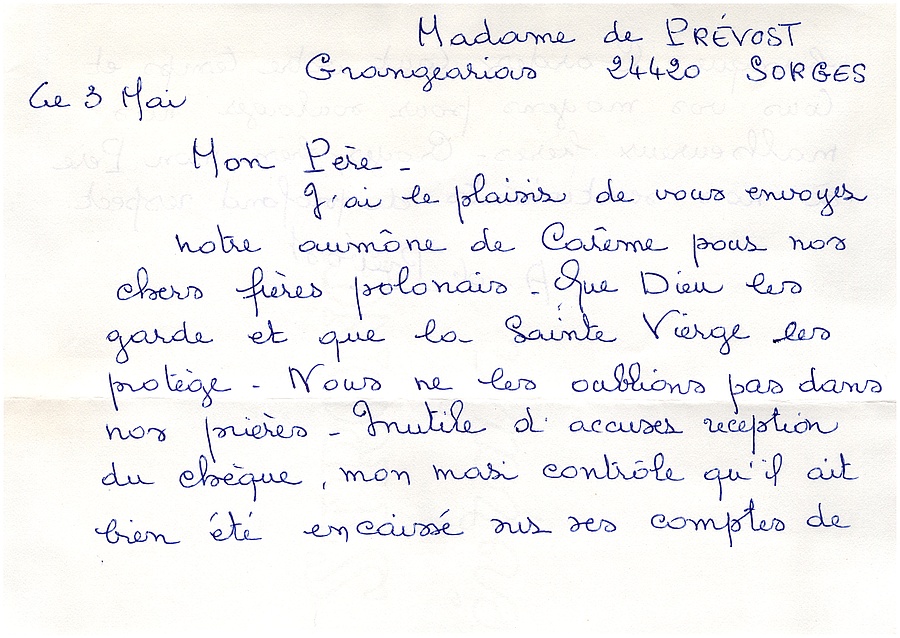 Madame de PRÉVOST
Grangearias 24420 SORGES
Ce 3 Mai
Mon Père -
J'ai le plaisir de vous envoyer
notre aumône de Carême pour nos
chers frères polonais - Que Dieu les
garde et que la Sainte Vierge les
protège - Nous ne les oublions pas dans
nos prières - Inutile d'accuser réception
du chèque, mon mari contrôle qu'il ait
bien été encaissé sur ses comptes de